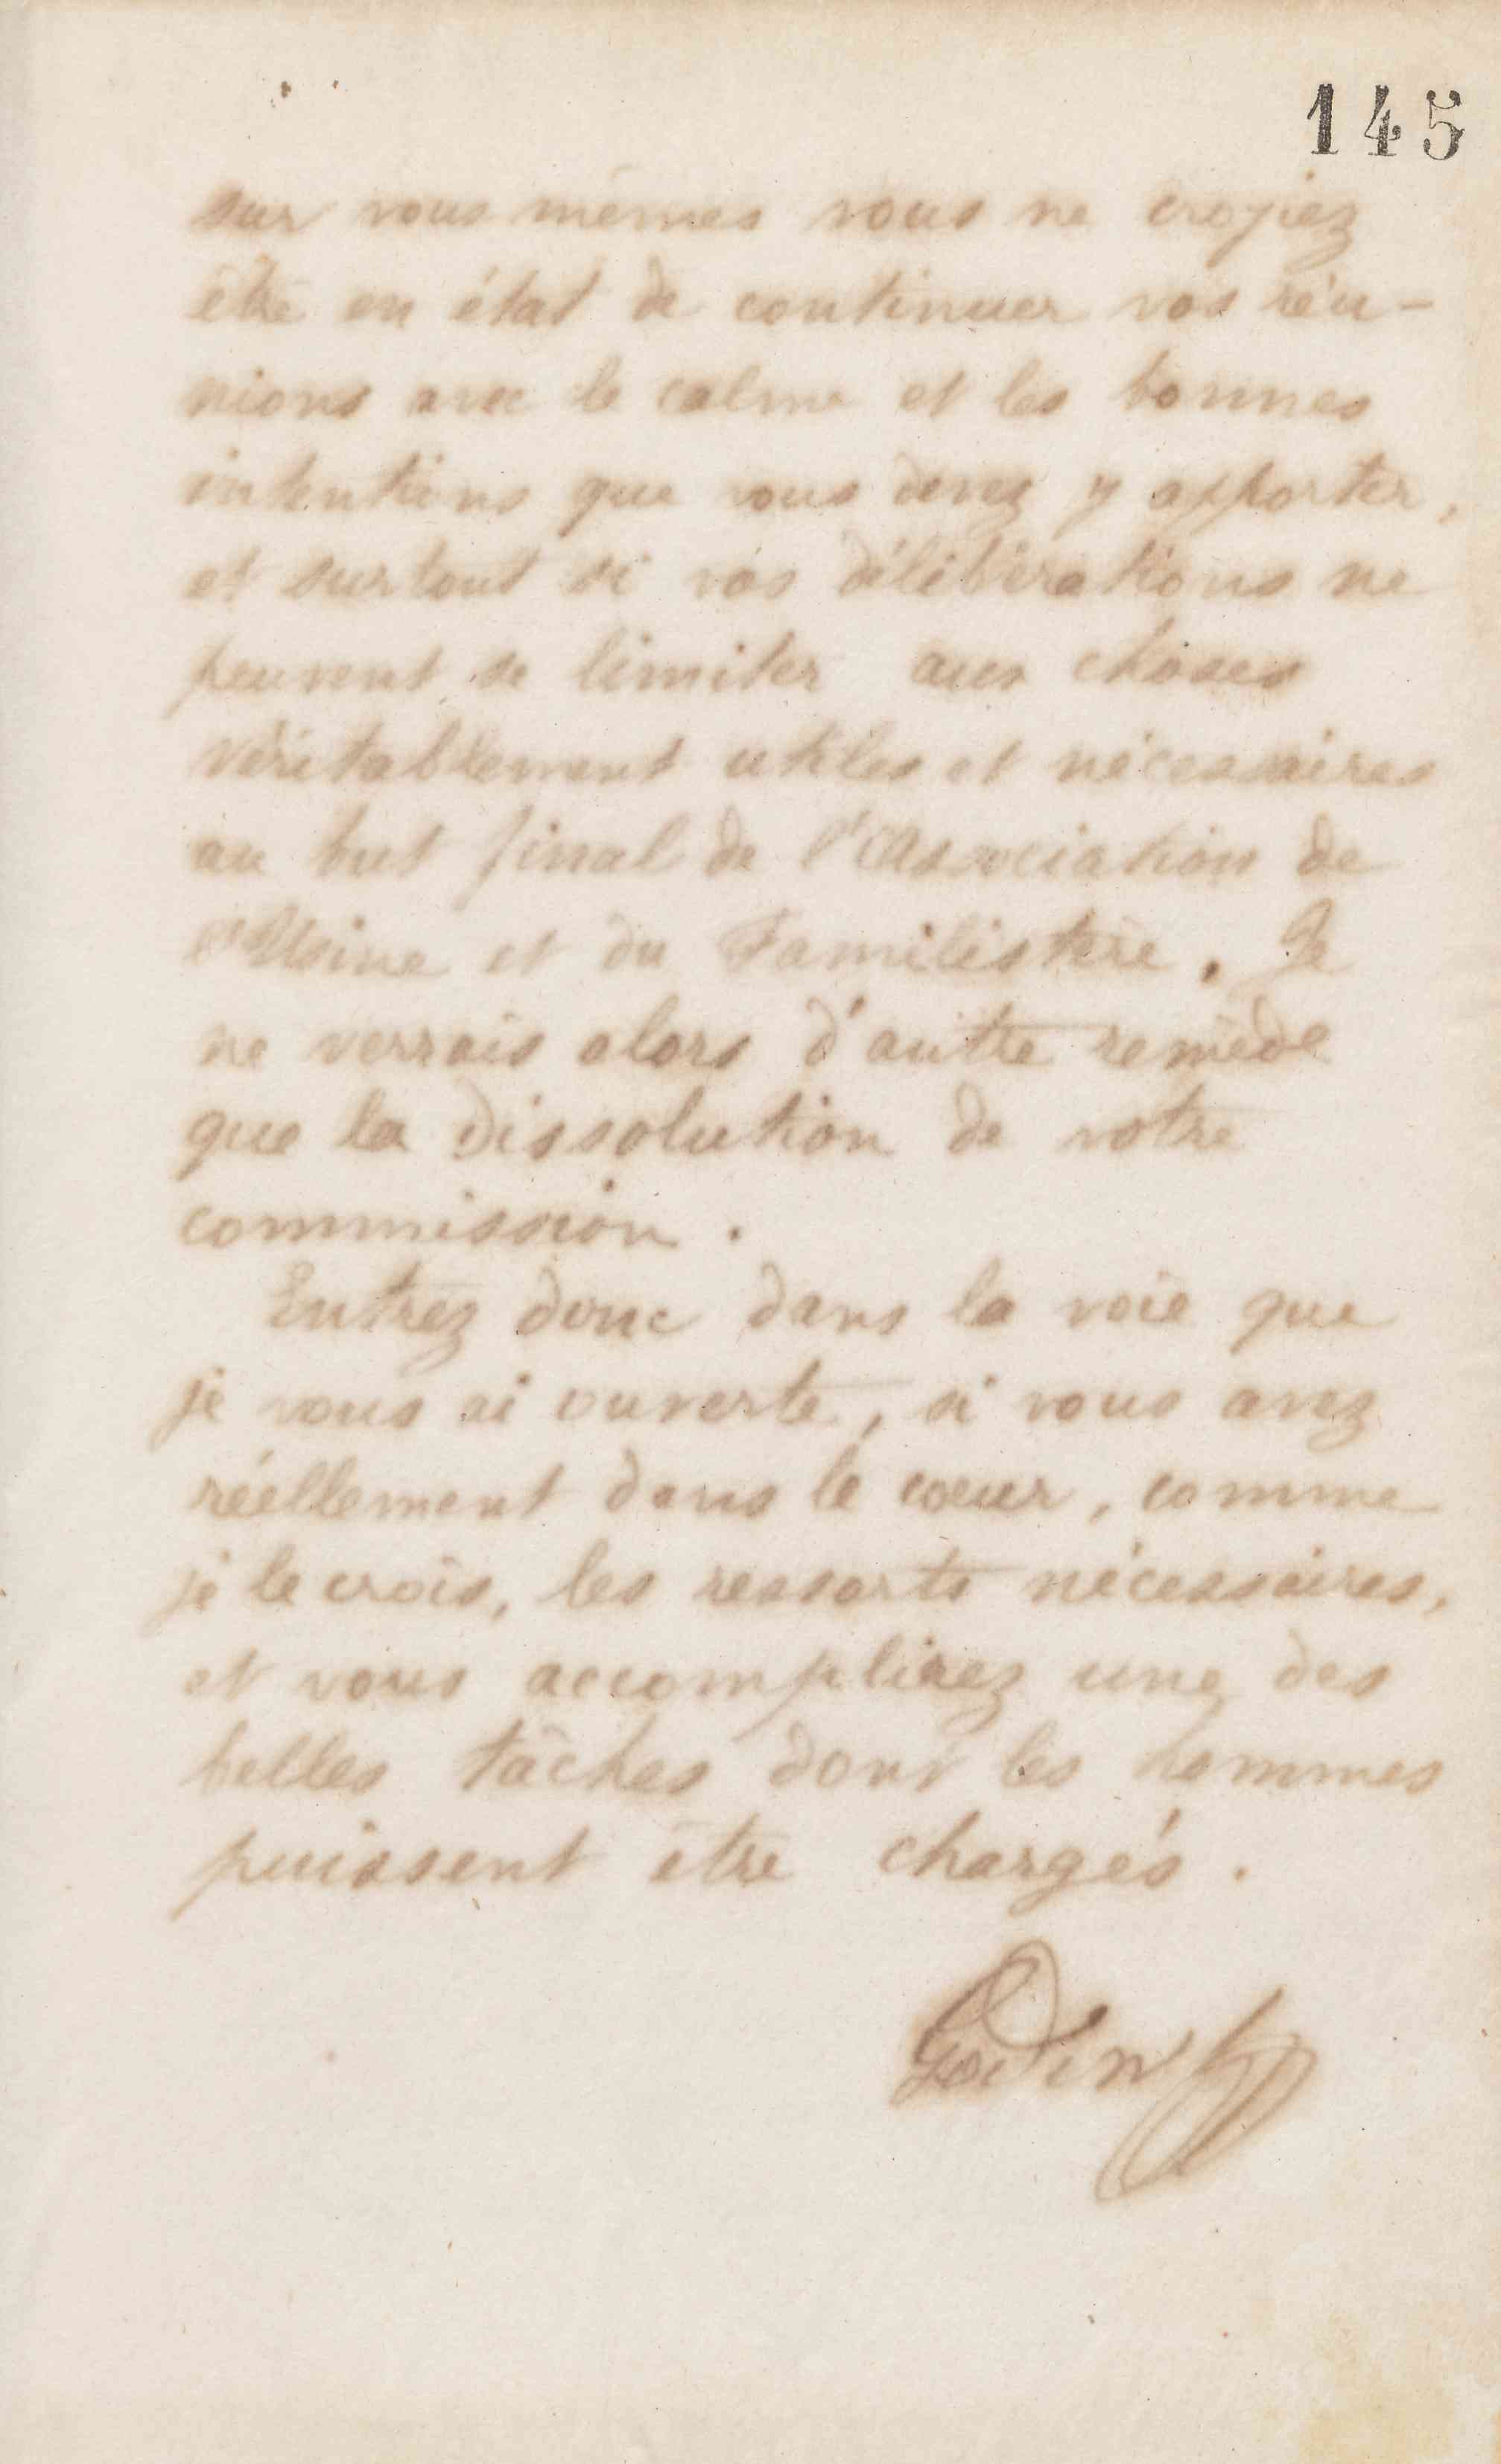 145
sur vous mêmes vous ne croyiez
être en état de continuer vos réu-
nions avec le calme et les bonnes
intentions que vous devez y apporter,
et surtout si vos délibérations ne
peuvent se limiter aux choses
véritablement utiles et nécessaires
au but final de l'Association de
l'Usine et du Familistère. Je
ne verrais alors d'autre remède
que la dissolution de votre
commission.
Entrez donc dans la voie que
je vous ai ouverte, si vous avez
réellement dans le cœur, comme
je le crois, les ressorts nécessaires,
et vous accomplirez une des
belles tâches dont les hommes
puissent être chargés.
Godin